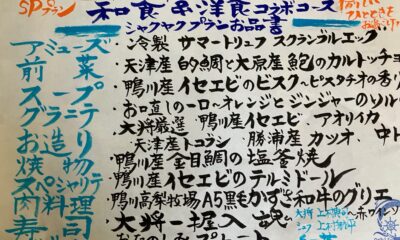 SPプラン
和食&洋食コラボコース
シャクヤクプランお品書
アミューズ ・冷製 サマートリュフ スクランブルエッグ
前菜 ・天津産 的鯛と大原産 鮑のカルトッチョ
スープ ・鴨川産 イセエビのビスク～ピスタチオの香り
グラニテ ・お口直しの一口～オレンジとジンジャーのソル
お造り ・大将厳選 鴨川産 イセエビ、アオリイカ
天津産トコブシ、勝浦産 カツオ、中ト
焼物 ・鴨川産 金目鯛の塩釜焼
スペシャリテ ・鴨川産 イセエビのテルミドール
肉料理 ・鴨川高梨牧場A5黒毛かずさ和牛のグリエ
～赤ワイン
寿司 ・大将一握入魂
大将
シェフ